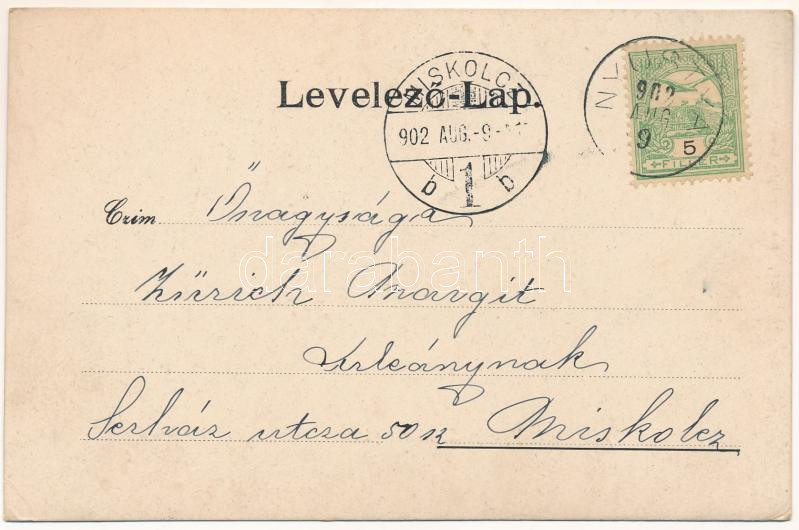 Levelező-Lap.
MISKOLCZ
902 AUG.-9
b 1 b
902
AUG
9
5
FILLÉR
Czim Őnagysága
Zürich Margit
Urleánynak
Serház utcza 50 sz Miskolcz
darabanth